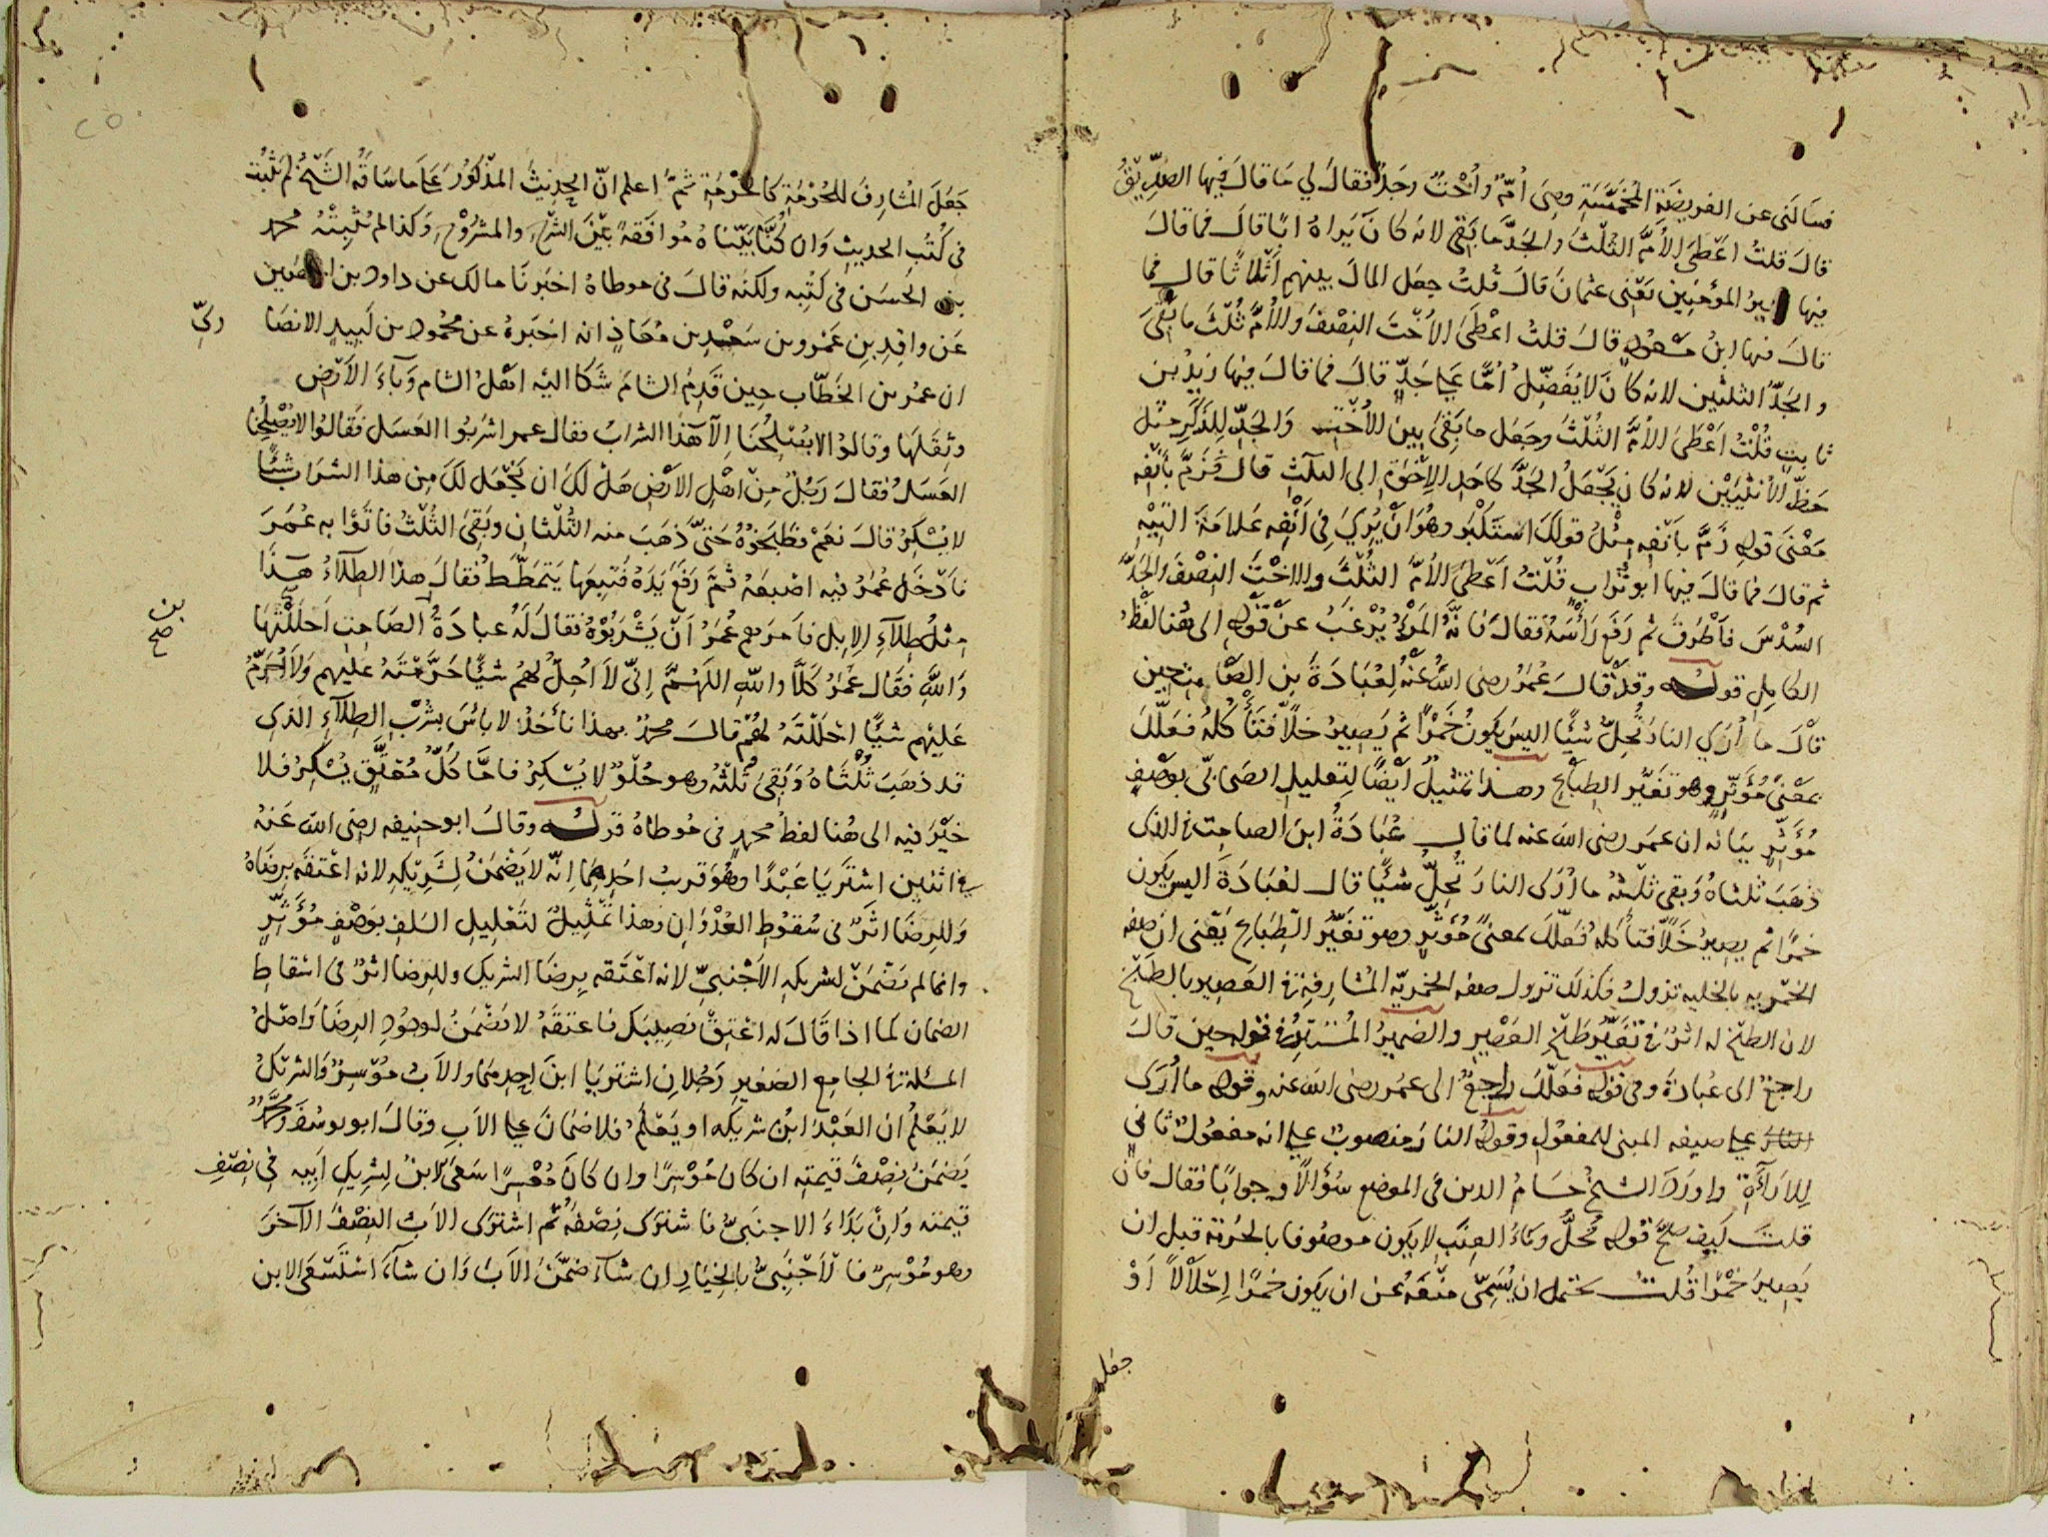 فسالنى عن الفريضة المخمسة وهى أم وأخت وجد فقال لي ما قال فيها الصديق
قال قلت اعطى الأم الثلث والجد ما بقى لانه كان يراه ابا قال فما قال
فيها امير المؤمنين يعنى عثمان قال قلت جعل المال بينهم أثلاثا قال فما
قال فيها ابن مسعود قال قلت اعطى الأخت النصف والأم ثلث ما بقى
والجد الثلثين لانه كان لا يفضل أما على جد قال فما قال فيها زيد بن
ثابت قلت أعطى الأم الثلث وجعل ما بقى بين الأخت والجد للذكر مثل
حظ الأنثيين لانه كان يجعل الجد كاحد الإخوة إلى الثلث قال فزم بأنفه
معنى قوله زم بأنفه مثل قولك استكبر وهو ان يرى في أنفه علامة التيه
ثم قال فما قال فيها ابو تراب قلت أعطى الأم الثلث والاخت النصف والجد
السدس فأطرق ثم رفع رأسه فقال فانه المرء يرغب عن قوله الى هنا لفظ
الكامل قوله وقد قال عمر رضى الله عنه لعبادة بن الصامت حين
قال ما أرى النار تحل شيئا اليس يكون خمرا ثم يصير خلا فتأكله فعلل
بمعنى مؤثر وهو تغير الطباع وهذا تمثيل أيضا لتعليل الصحابي بوصف
مؤثر بيانه ان عمر رضى الله عنه لما قال عبادة ابن الصامت في الذى
ذهب ثلثاه وبقى ثلثه ما أرى النار تحل شيئا قال لعبادة اليس يكون
خمرا ثم يصير خلا فتأكله فعلل بمعنى مؤثر وهو تغير الطباع يعنى ان صفه
الخمريه بالخليه تزول فكذلك تزول صفه الخمرية المشارفة في العصير بالطبخ
لان الطبخ له اثر في تغير طبخ العصير والضمير المستتر في قوله حين قال
راجع الى عبادة وفى قوله فعلل راجع الى عمر رضى الله عنه وقوله ما أرى
النار على صيغه المبنى للمفعول وقوله النار منصوب على انه مفعول ثاني
للاراءة واورد الشيخ حسام الدين فى الموضع سؤالا وجوابا فقال فان
قلت كيف صح قوله تحل وماء العنب لا يكون موصوفا بالحرمة قبل ان
يصير خمرا قلت يحتمل ان يسمى منعه عن ان يكون خمرا إحلالا أو
جعل
جعل المشارف للحرمة كالحرمة ثم اعلم ان الحديث المذكور على ما ساقه الشيخ لم يثبت
فى كتب الحديث وان كنا بيناه موافقة بين الشرح والمشروح وكذا لم يثبته محمد
بن الحسن فى كتبه ولكنه قال فى موطاه اخبرنا مالك عن داود بن الحصين
عن واقد بن عمرو بن سعد بن معاذ انه اخبره عن محمود بن لبيد الانصا
رى
ان عمر بن الخطاب حين قدم الشام شكا اليه اهل الشام وباء الأرض
وثقلها وقالوا لا يصلحنا إلا هذا الشراب فقال عمر اشربوا العسل فقالوا لا يصلحنا
العسل فقال رجل من اهل الأرض هل لك ان نجعل لك من هذا الشراب شيئا
لا يسكر قال نعم فطبخوه حتى ذهب منه الثلثان وبقى الثلث فاتوا به عمر
فأدخل عمر فيه اصبعه ثم رفع يده فتبعها يتمطط فقال هذا الطلاء هذا
مثل طلاء الإبل فأمرهم عمر أن يشربوه فقال له عبادة الصامت احللتها
بن
صح
والله فقال عمر كلا والله اللهم إنى لا احل لهم شيئا حرمته عليهم ولا احرم
عليهم شيئا احللته لهم قال محمد بهذا نأخذ لا بأس بشرب الطلاء الذى
قد ذهب ثلثاه وبقى ثلثه وهو حلو لا يسكر فاما كل معتق يسكر فلا
خير فيه الى هنا لفظ محمد فى موطاه قوله وقال ابو حنيفه رضى الله عنه
في اثنين اشتريا عبدا وهو قريب احدهما إنه لا يضمن لشريكه لانه اعتقه برضاه
وللرضا اثر فى سقوط العدوان وهذا تمثيل لتعليل السلف بوصف مؤثر
وانما لم يضمن لشريكه الأجنبي لانه اعتقه برضا الشريك وللرضا اثر فى اسقاط
الضمان كما اذا قال له اعتق نصيبك فاعتقه لا يضمن لوجود الرضا واصل
المسئلة في الجامع الصغير رجلان اشتريا ابن احدهما والأب موسر والشريك
لا يعلم ان العبد ابن شريكه او يعلم فلا ضمان على الاب وقال ابو يوسف ومحمد
يضمن نصف قيمته ان كان موسرا وان كان معسرا سعى الابن لشريك ابيه في نصف
قيمته وان بدأ الاجنبي فاشترى نصفه ثم اشترى الاب النصف الآخر
وهو موسر فالأجنبي بالخيار ان شاء ضمن الأب وان شاء استسعى الابن